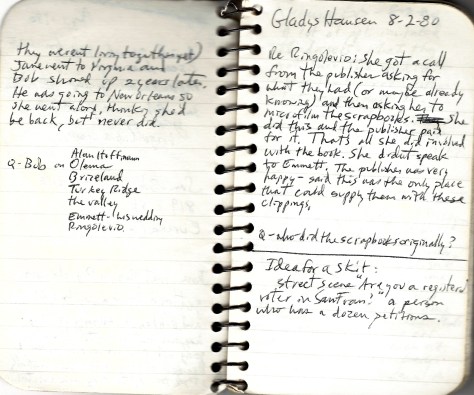 they weren't living together yet)
Jane went to Virginia and
Bob showed up 2 years later.
He was going to New Orleans so
she went along, thinking she'd
be back, but never did.
Q-Bob on Alan Hoffmann
Olema
Briceland
Turkey Ridge
the valley
Emmett - his wedding
Ringolevio.
Gladys Hansen 8-2-80
Re Ringolevio: She got a call
from the publisher asking for
what they had (or maybe already
knowing) and then asking her to
microfilm the scrapbooks. She
did this and the publisher paid
for it. That's all she did involved
with the book. She didn't speak
to Emmett. The publisher was very
happy - said this was the only place
that could supply them with these
clippings.
Q - who did the scrapbooks originally?
Idea for a skit:
street scene "Are you a registered
voter in San Fran?" a person
who has a dozen petitions.